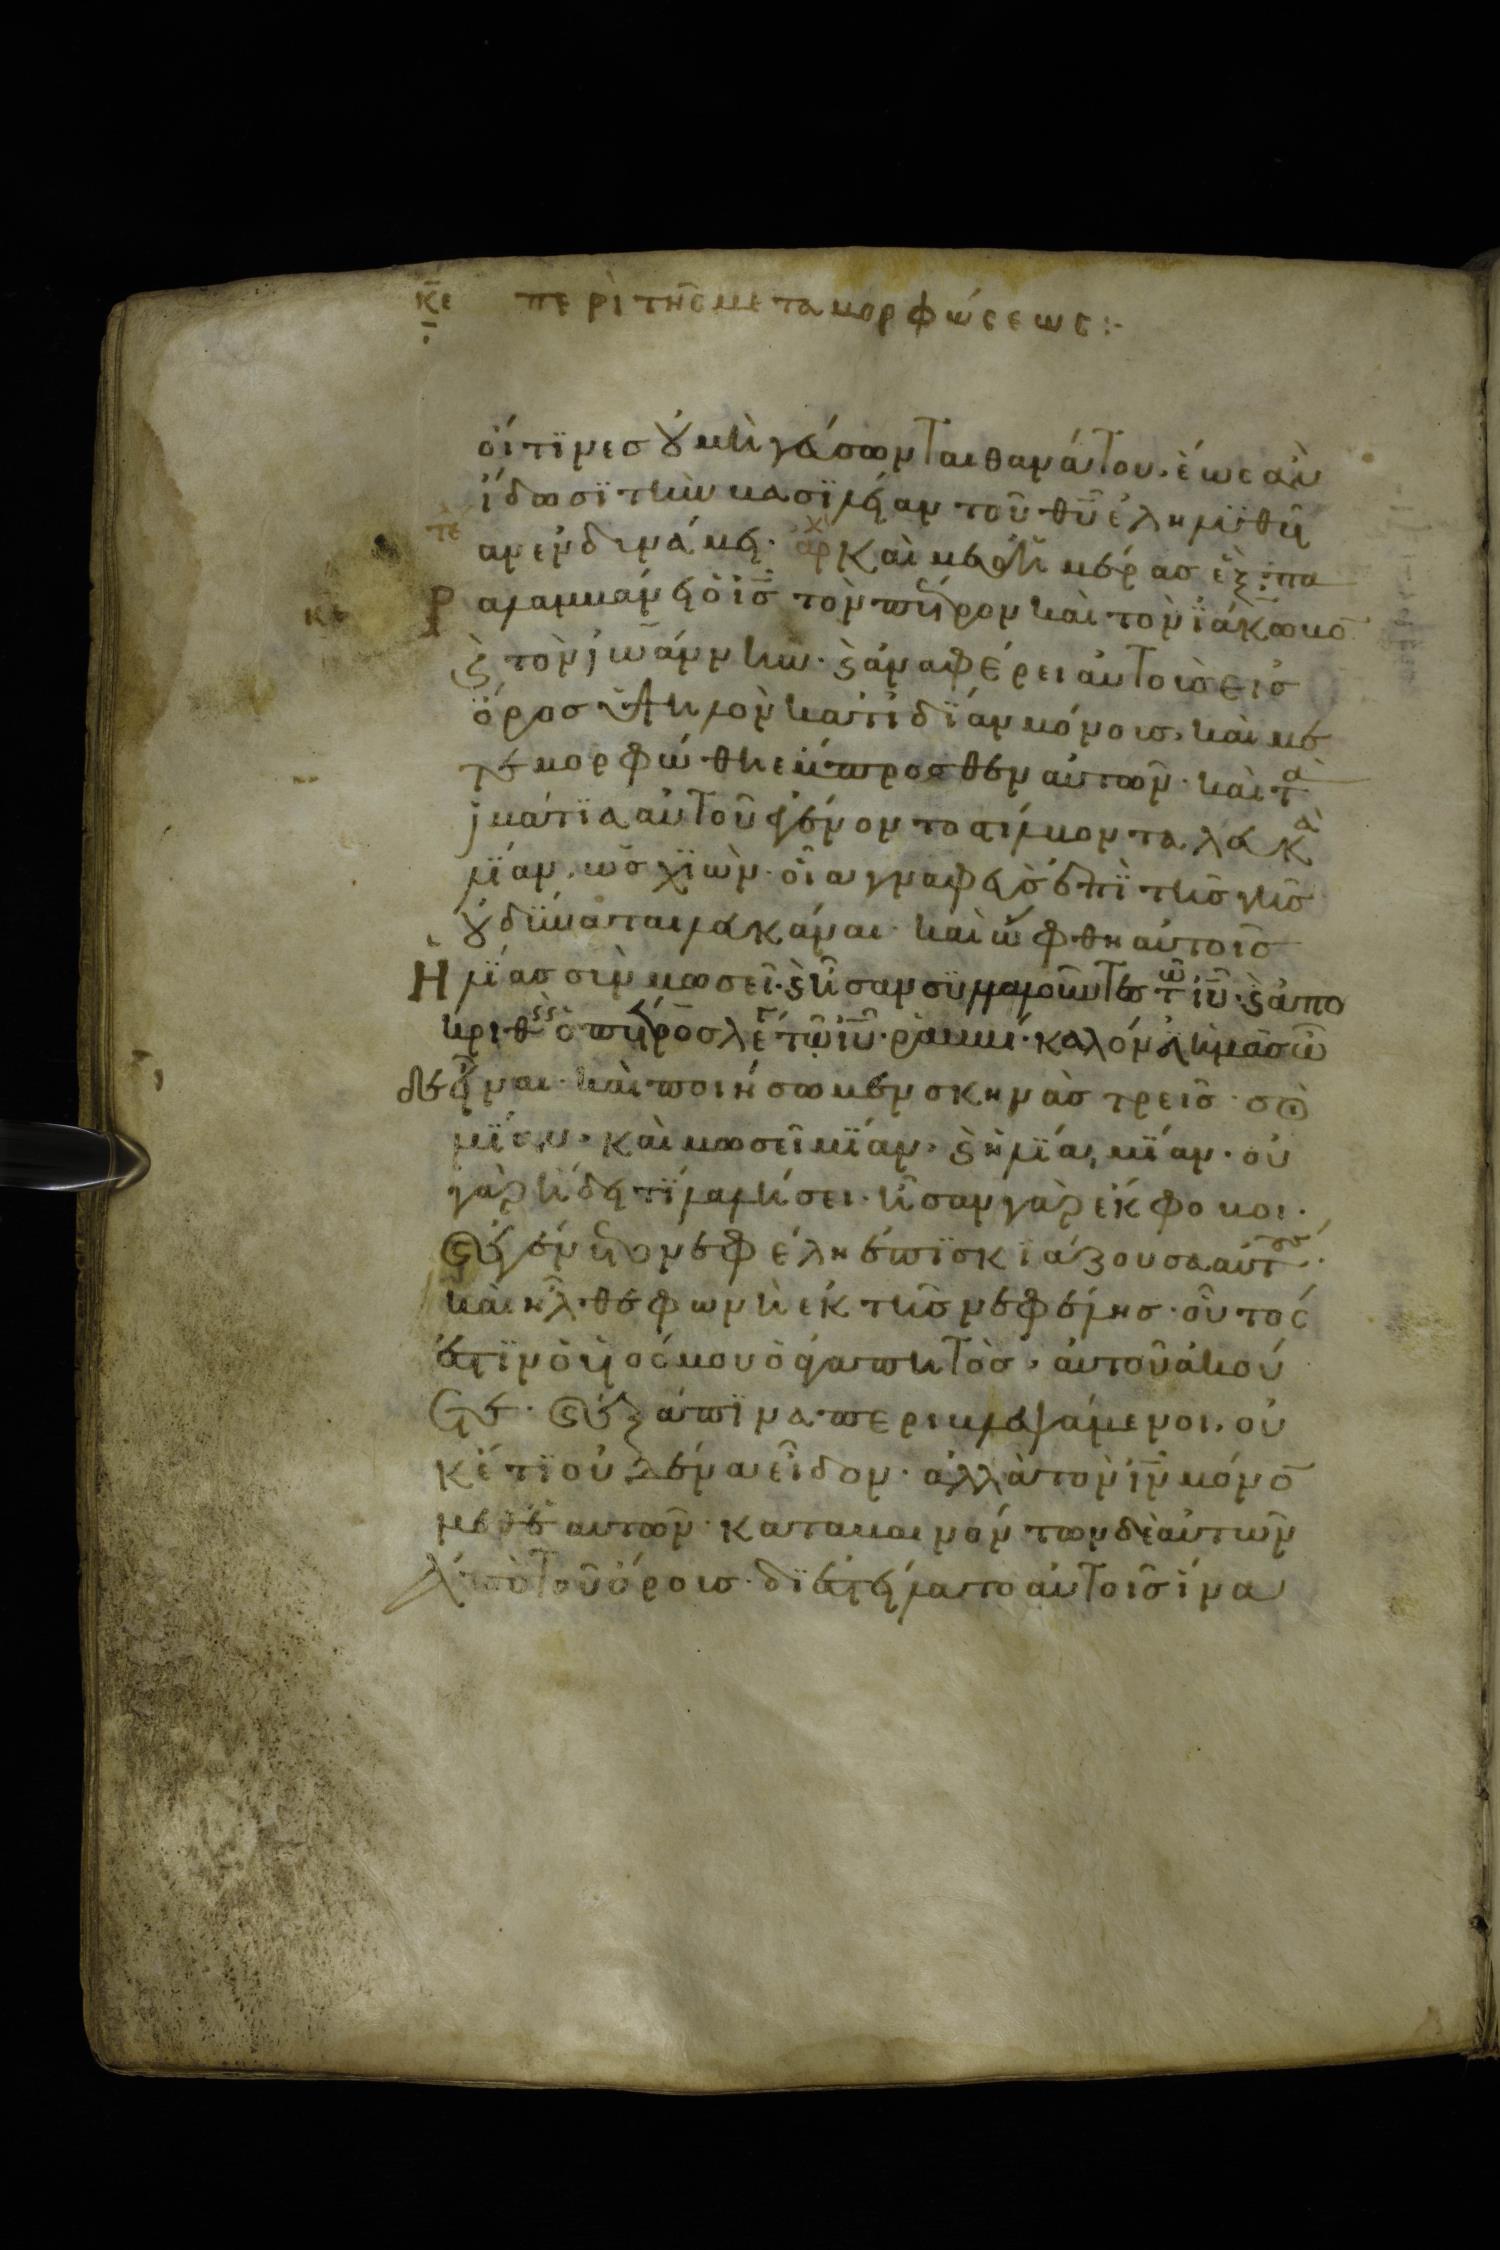 κε περὶ τῆς μεταμορφώσεως :-
οἵτϊνες οὐ μὴ γεύσωνται θανάτου. ἕως ἂν
ἴδωσϊ τὴν βασϊλείαν τοῦ θῦ ἐληλυθυῖ
τε
αν ἐν δυνάμει. αρχ καὶ μεθ ἡμέρας ἓξ πα
κε
ραλαμβάνει ὁ ις τὸν πέτρον καὶ τὸν ϊάκωβο
καὶ τὸν ϊωάννην. καὶ ἀναφέρει αὐτοὺς εἰς
ὄρος ὑψηλὸν κατιδΐαν μόνους. καὶ με
τεμορφώθη ἔμπροσθεν αὐτῶν. καὶ τὰ
ϊμάτϊα αὐτοῦ ἐγένοντο στίλβοντα λευκὰ
λίαν. ὡς χϊὼν. οἷα γναφεὺς ἐπὶ τῆς γῆς
οὐ δύναται λευκάναι. καὶ ὤφθη αὐτοῖς
Ηλΐας σὺν μωσεῖ. καὶ ἦσαν συλλαλοῦντες τῶ ιυ. καὶ ἀπο
κριθεὶς ὁ πέτρος λέγει τῶ ιυ. ραββί. καλόν ἐστιν ἡμᾶς ὧ
δε εἶναι. καὶ ποιήσωμεν σκηνὰς τρεῖς. σοὶ
μΐαν. καὶ μωσεῖ μΐαν. καὶ ἠλΐα μΐαν. οὐ
γὰρ ἤδει τΐ λαλήσει. ἦσαν γὰρ ἔκφοβοι.
καὶ ἐγένετο νεφέλη ἐπϊσκϊάζουσα αὐτοῖς.
καὶ ἦλθε φωνὴ ἐκ τῆς νεφέλης. οὗτός
ἐστϊν ὁ υἱός μου ὁ ἀγαπητὸς. αὐτοῦ ἀκού
ετε. καὶ ἐξάπϊνα περιβλεψάμενοι. οὐ
κέτϊ οὐδένα εἶδον. ἀλλὰ τὸν ιν μόνο
μεθ ἑαυτῶν. καταβαινόντων δὲ αὐτῶν
ἀπὸ τοῦ ὄρους. διεστείλατο αὐτοῖς ἵνα